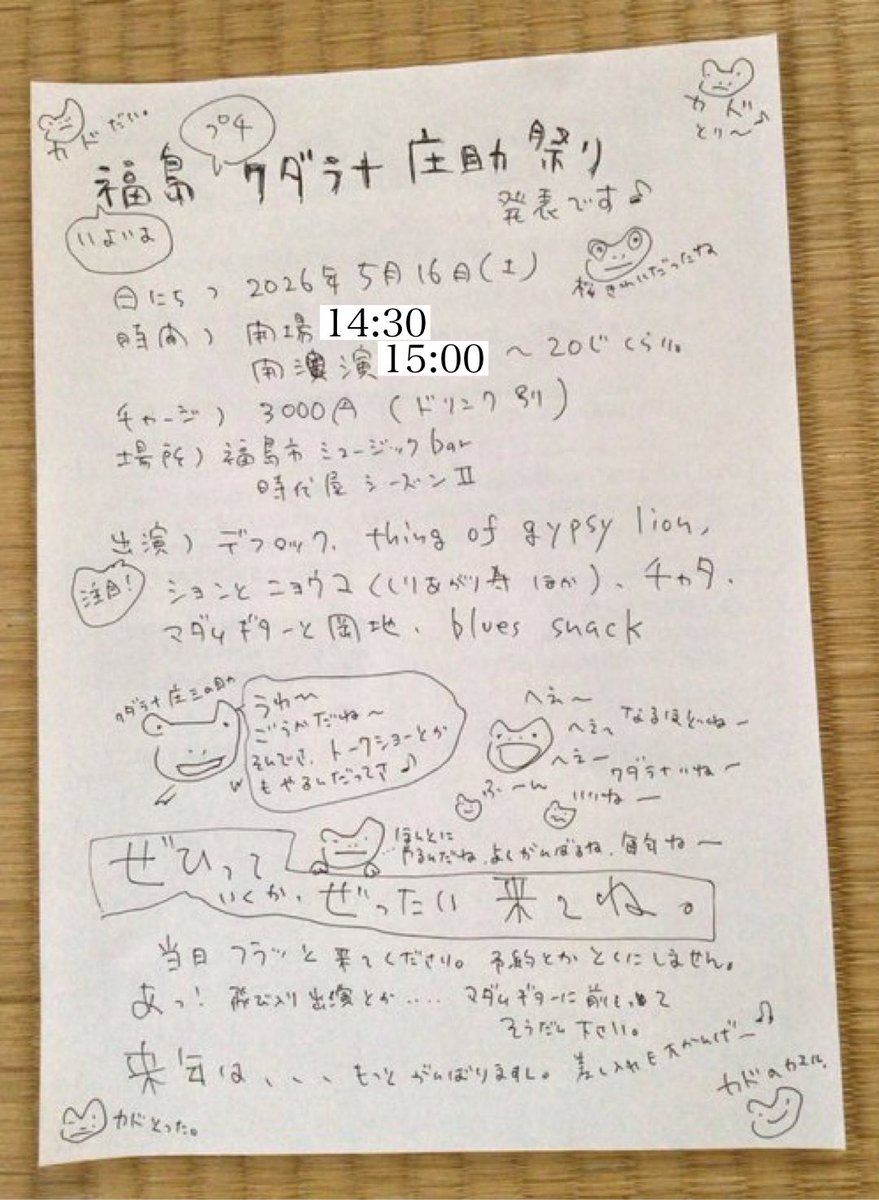 カドだい。
プチ
カド
とり〜♪
福島 クダラナ 庄助 祭り
発表です♪
いよいよ
日にち) 2026年5月16日(土)
桜きれいだったね
時間) 開場 14:30
開演 15:00 〜20じくらい。
チャージ) 3000円(ドリンク別)
場所) 福島市 ミュージックbar
時代屋 シーズンⅡ
出演) デフロック、thing of gypsy lion、
注目!
ションとニョウコ(しりあがり寿 ほか)、チャタ、
マダムギターと岡地、blues snack
クダラナ庄三の目の
うわ〜
ごうかだね〜
そんでさ、トークショーとか
もやるんだってさ♪
へえ〜
へえ〜 なるほどね〜
へえー クダラナいねー
ふーん いいねー
ほんとに
やるんだね、よくがんばるね、毎年ね〜
ぜひって
いくか、ぜったい来てね。
当日フラッと来てください。予約とかとくにしません。
あっ! 飛び入り出演とか‥‥ マダムギターに前もって
そうだん下さい。
来年は、、、もっとがんばりますし。差し入れも大かんげー♪
カドのカエル。
カドとった。